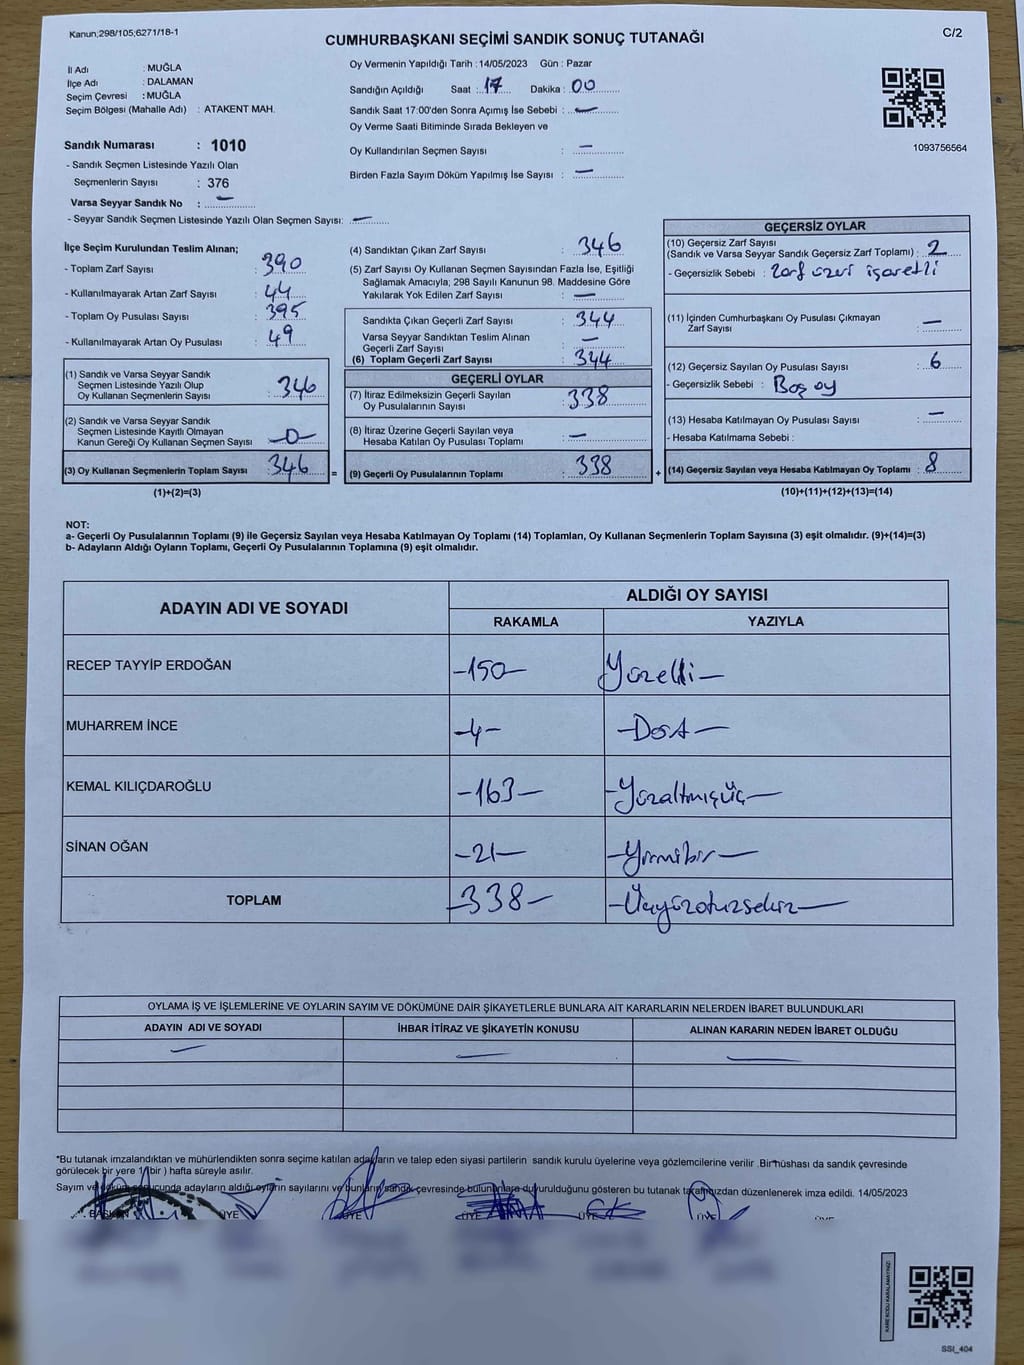 Kanun;298/105;6271/18-1
C/2
CUMHURBAŞKANI SEÇİMİ SANDIK SONUÇ TUTANAĞI
İl Adı : MUĞLA
İlçe Adı : DALAMAN
Seçim Çevresi : MUĞLA
Seçim Bölgesi (Mahalle Adı) : ATAKENT MAH.
Oy Vermenin Yapıldığı Tarih :14/05/2023 Gün : Pazar
Sandığın Açıldığı Saat : 17 Dakika : 00
Sandık Saat 17:00'den Sonra Açımış İse Sebebi : —
Oy Verme Saati Bitiminde Sırada Bekleyen ve
Oy Kullandırılan Seçmen Sayısı : —
Birden Fazla Sayım Döküm Yapılmış İse Sayısı : —
1093756564
Sandık Numarası : 1010
- Sandık Seçmen Listesinde Yazılı Olan
Seçmenlerin Sayısı : 376
Varsa Seyyar Sandık No : —
- Seyyar Sandık Seçmen Listesinde Yazılı Olan Seçmen Sayısı: —
İlçe Seçim Kurulundan Teslim Alınan;
- Toplam Zarf Sayısı : 390
- Kullanılmayarak Artan Zarf Sayısı : 44
- Toplam Oy Pusulası Sayısı : 395
- Kullanılmayarak Artan Oy Pusulası : 49
(1) Sandık ve Varsa Seyyar Sandık
Seçmen Listesinde Yazılı Olup
Oy Kullanan Seçmenlerin Sayısı : 346
(2) Sandık ve Varsa Seyyar Sandık
Seçmen Listesinde Kayıtlı Olmayan
Kanun Gereği Oy Kullanan Seçmen Sayısı —0—
(3) Oy Kullanan Seçmenlerin Toplam Sayısı : 346
(1)+(2)=(3)
(4) Sandıktan Çıkan Zarf Sayısı : 346
(5) Zarf Sayısı Oy Kullanan Seçmen Sayısından Fazla İse, Eşitliği
Sağlamak Amacıyla; 298 Sayılı Kanunun 98. Maddesine Göre
Yakılarak Yok Edilen Zarf Sayısı : —
Sandıkta Çıkan Geçerli Zarf Sayısı : 344
Varsa Seyyar Sandıktan Teslim Alınan
Geçerli Zarf Sayısı : —
(6) Toplam Geçerli Zarf Sayısı : 344
GEÇERLİ OYLAR
(7) İtiraz Edilmeksizin Geçerli Sayılan
Oy Pusulalarının Sayısı : 338
(8) İtiraz Üzerine Geçerli Sayılan veya
Hesaba Katılan Oy Pusulası Toplamı : —
= (9) Geçerli Oy Pusulalarının Toplamı : 338
GEÇERSİZ OYLAR
(10) Geçersiz Zarf Sayısı
(Sandık ve Varsa Seyyar Sandık Geçersiz Zarf Toplamı) : 2
- Geçersizlik Sebebi : Zarf üzeri işaretli
(11) İçinden Cumhurbaşkanı Oy Pusulası Çıkmayan
Zarf Sayısı : —
(12) Geçersiz Sayılan Oy Pusulası Sayısı : 6
- Geçersizlik Sebebi : Boş oy
(13) Hesaba Katılmayan Oy Pusulası Sayısı : —
- Hesaba Katılmama Sebebi :
+ (14) Geçersiz Sayılan veya Hesaba Katılmayan Oy Toplamı : 8
(10)+(11)+(12)+(13)=(14)
NOT:
a- Geçerli Oy Pusulalarının Toplamı (9) ile Geçersiz Sayılan veya Hesaba Katılmayan Oy Toplamı (14) Toplamları, Oy Kullanan Seçmenlerin Toplam Sayısına (3) eşit olmalıdır. (9)+(14)=(3)
b- Adayların Aldığı Oyların Toplamı, Geçerli Oy Pusulalarının Toplamına (9) eşit olmalıdır.
ADAYIN ADI VE SOYADI ALDIĞI OY SAYISI
RAKAMLA YAZIYLA
RECEP TAYYİP ERDOĞAN —150— Yüzelli—
MUHARREM İNCE —4— —Dört—
KEMAL KILIÇDAROĞLU —163— —Yüzaltmışüç—
SİNAN OĞAN —21— —Yirmibir—
TOPLAM —338— —Üçyüzotuzsekiz—
OYLAMA İŞ VE İŞLEMLERİNE VE OYLARIN SAYIM VE DÖKÜMÜNE DAİR ŞİKAYETLERLE BUNLARA AİT KARARLARIN NELERDEN İBARET BULUNDUKLARI
ADAYIN ADI VE SOYADI İHBAR İTİRAZ VE ŞİKAYETİN KONUSU ALINAN KARARIN NEDEN İBARET OLDUĞU
— — —
*Bu tutanak imzalandıktan ve mühürlendikten sonra seçime katılan adayların ve talep eden siyasi partilerin sandık kurulu üyelerine veya gözlemcilerine verilir .Bir nüshası da sandık çevresinde
görülecek bir yere 1 (bir ) hafta süreyle asılır.
Sayım ve döküm sonucunda adayların aldığı oyların sayılarını ve bunların sandık çevresinde bulunanlara duyurulduğunu gösteren bu tutanak tarafımızdan düzenlenerek imza edildi. 14/05/2023
BAŞKAN ÜYE ÜYE ÜYE ÜYE ÜYE ÜYE
KARE KODU KARALAMAYINIZ!
SSI_404